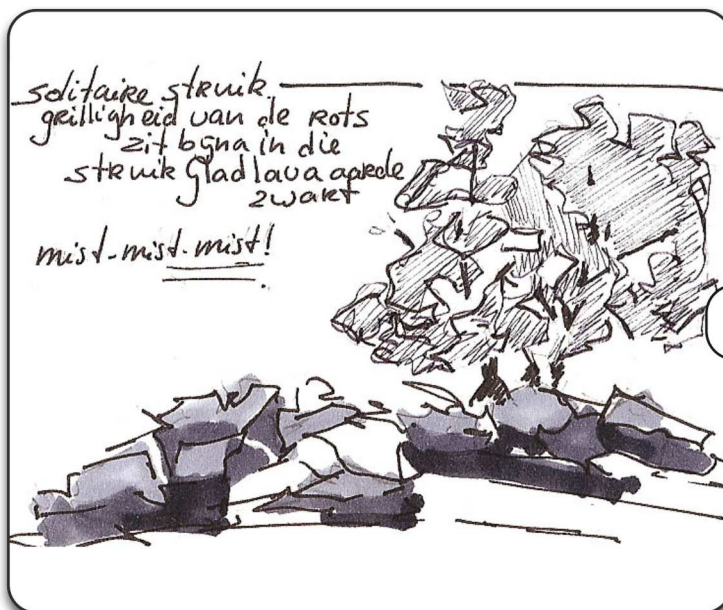 solitaire struik
grilligheid van de rots
zit bijna in die
struik glad lava aarde
zwart
mist-mist-mist!